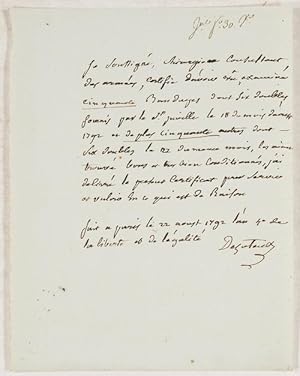 Je soussigné, chirurgien consultant
des armées, certifie d'avoir vû, examiné
cinquante Bandages dont six doubles
fournis par le Sr. Juville le 18 du mois d'aoust
1792 et de plus cinquante autres dont
six doubles le 22 du meme mois, les ai
trouvé bons et bien Conditionnés, j'ai
délivré le présent Certificat pour servir
et valoir En ce qui est de Raison
fait a paris le 22 aoust 1792 l'an 4e de
la liberté et de l'égalité